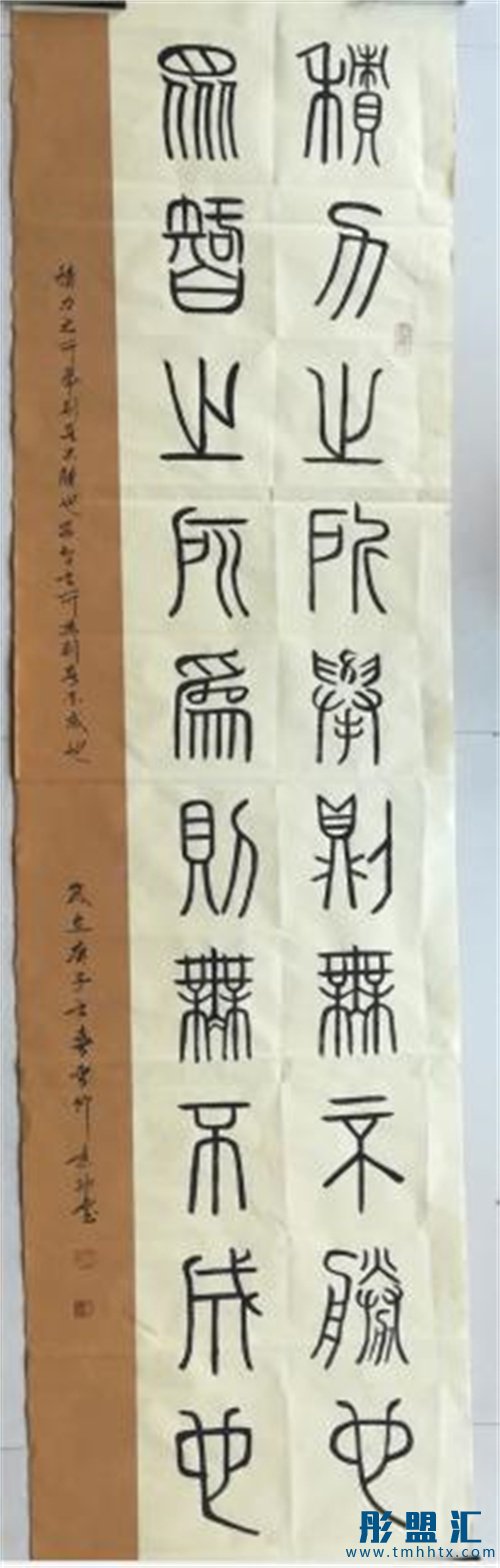 積力之所舉則無不勝也
眾智之所為則無不成也
積力之所舉則無不勝也眾智之所為則無不成也
歲在庚子之春雪竹
彤盟汇
www.tmhhtx.com